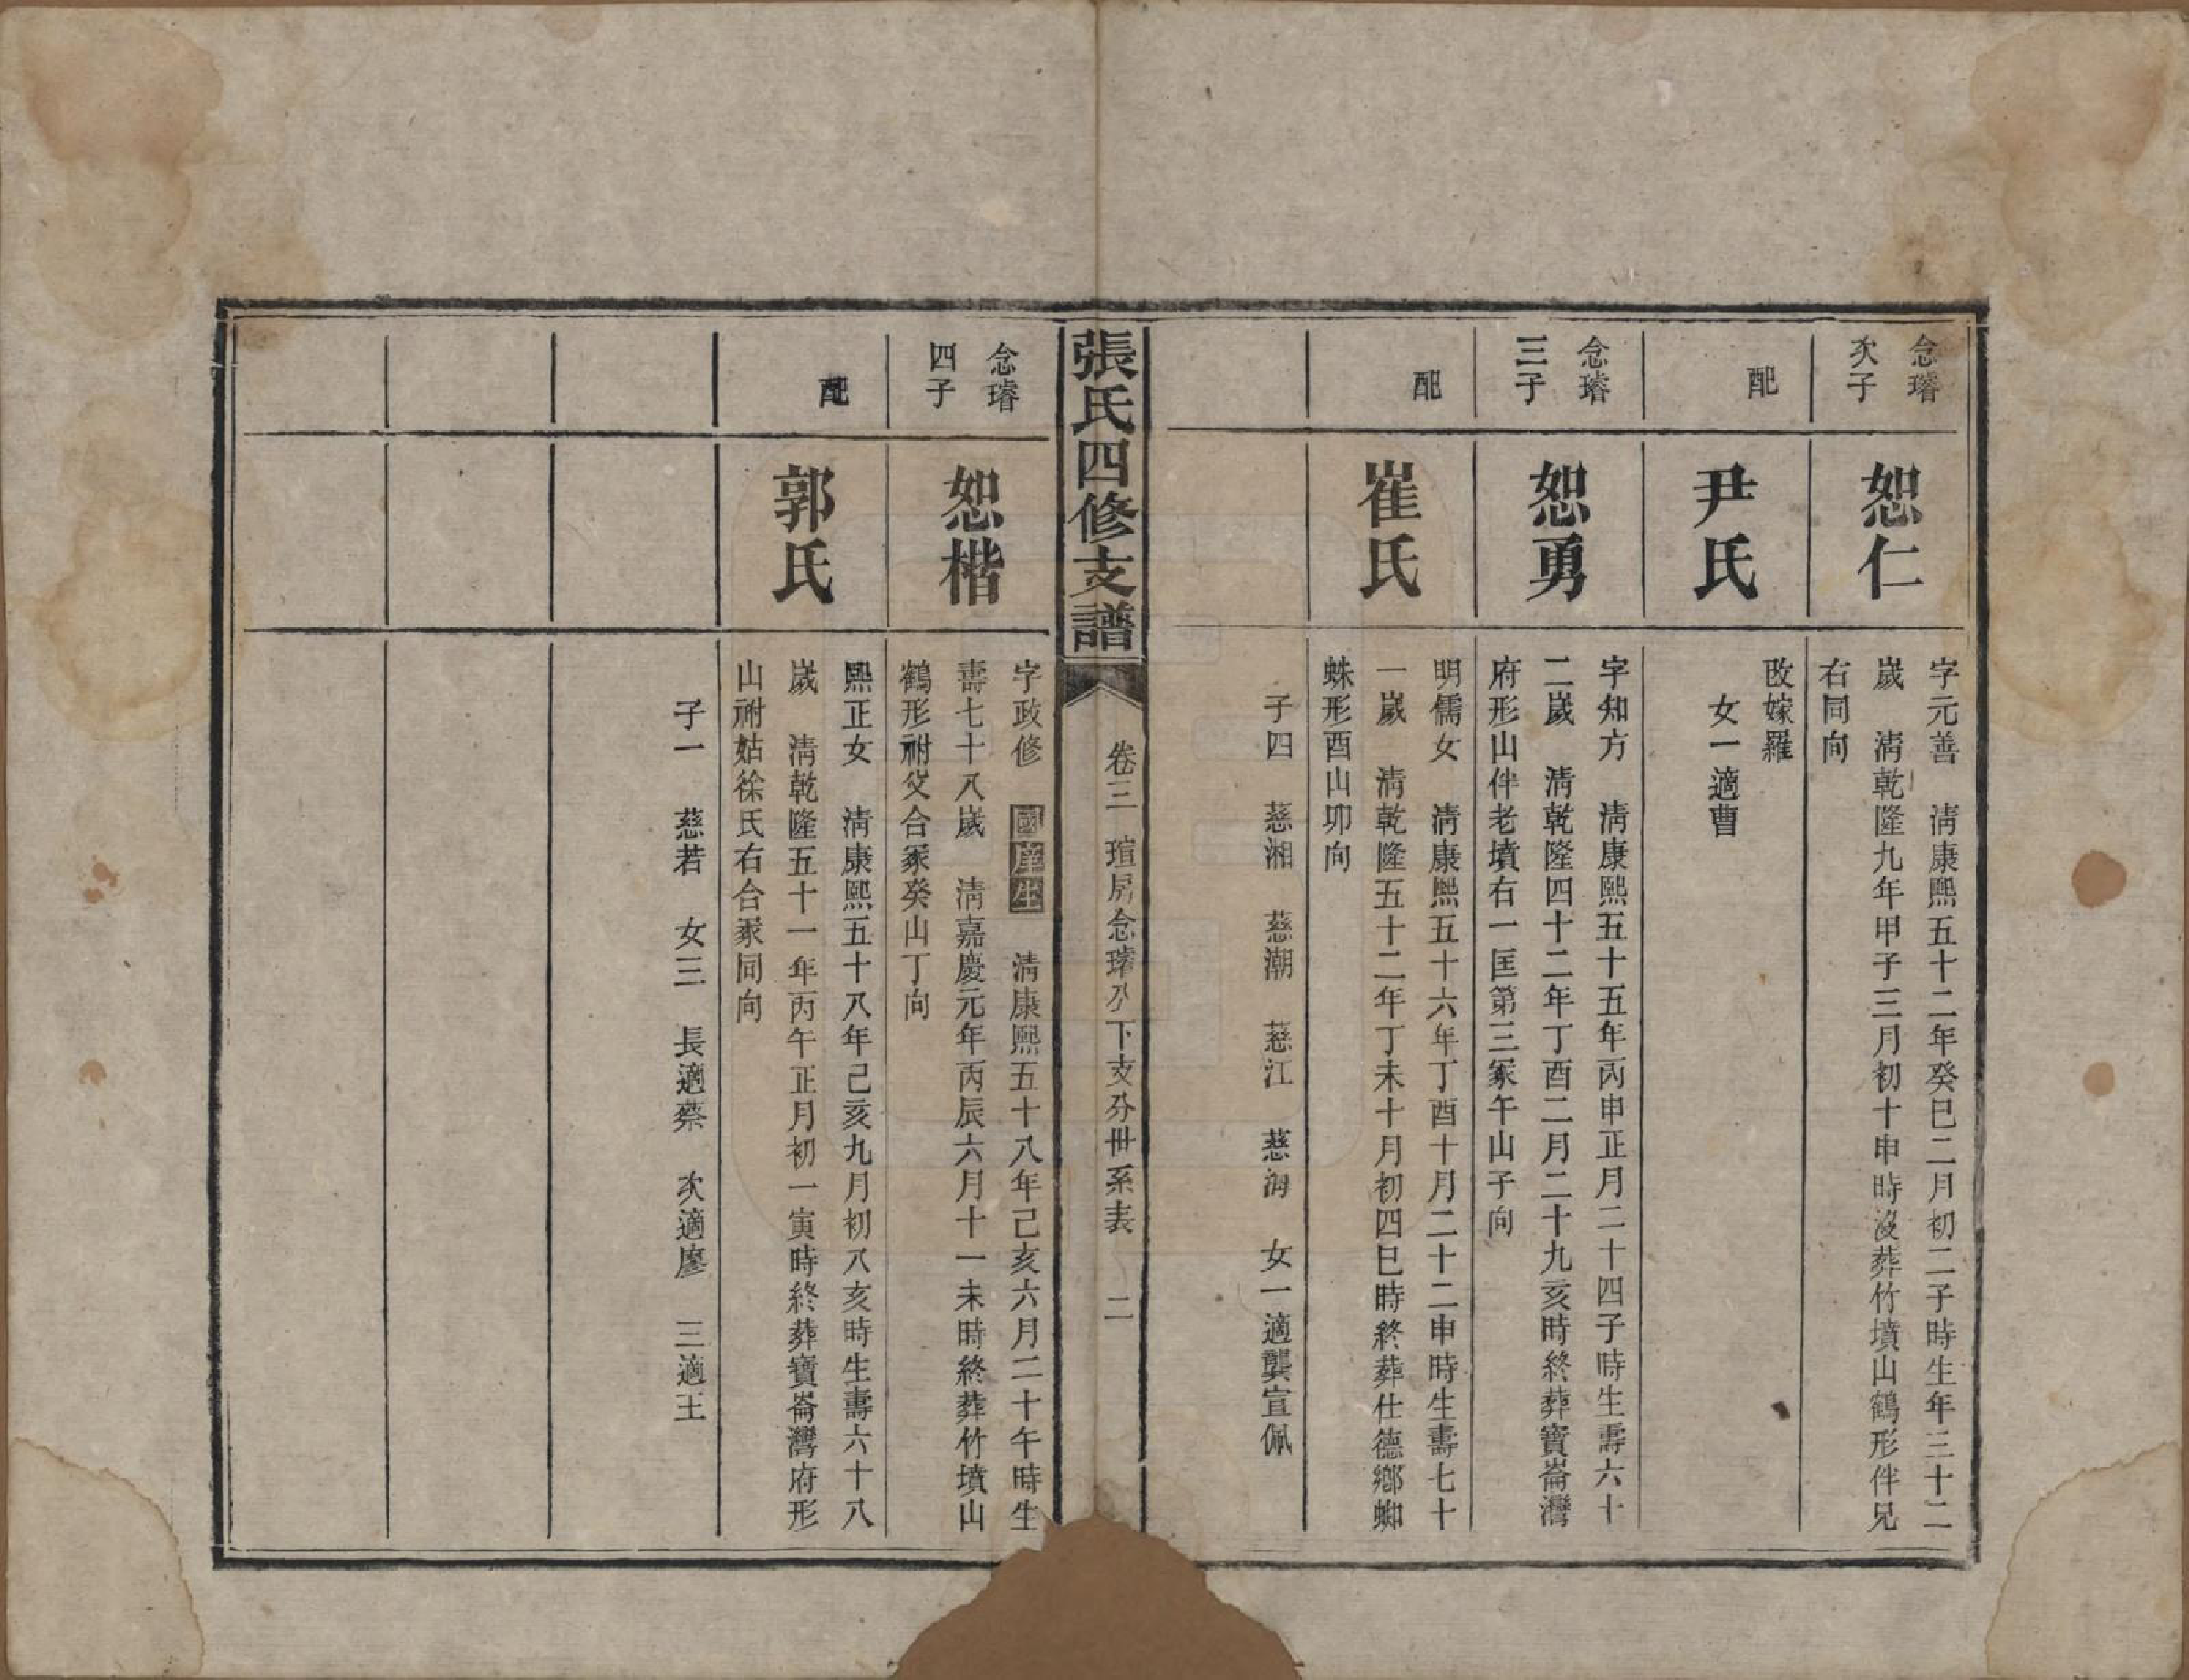 念璿
次子
恕仁
字元善　淸康熙五十二年癸巳二月初二子時生年三十二
歲　淸乾隆九年甲子三月初十申時沒葬竹墳山鶴形伴兄
右同向
配
尹氏
改嫁羅
女一適曹
念璿
三子
恕勇
字知方　淸康熙五十五年丙申正月二十四子時生壽六十
二歲　淸乾隆四十二年丁酉二月二十九亥時終葬寶崙灣
府形山伴老墳右一匡第三冢午山子向
配
崔氏
明儒女　淸康熙五十六年丁酉十月二十二申時生壽七十
一歲　淸乾隆五十二年丁未十月初四巳時終葬仕德鄕蜘
蛛形酉山卯向
子四　慈湘　慈潮　慈江　慈海　女一適龔宣佩
張氏四修支譜
卷三　瑄房念璿公下支分世系表　二
念璿
四子
恕楷
字政修　國庠生　淸康熙五十八年己亥六月二十午時生
壽七十八歲　淸嘉慶元年丙辰六月十一未時終葬竹墳山
鶴形祔父合冢癸山丁向
配
郭氏
熙正女　淸康熙五十八年己亥九月初八亥時生壽六十八
歲　淸乾隆五十一年丙午正月初一寅時終葬寶崙灣府形
山祔姑徐氏右合冢同向
子一　慈若　女三　長適蔡　次適廖　三適王